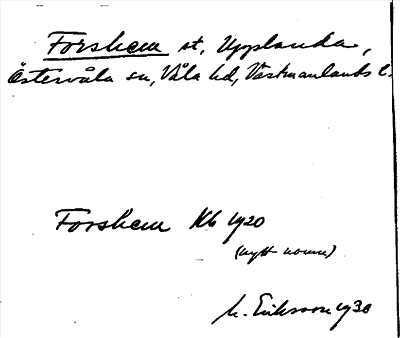 Forshem st, Upplanda,
Östervåla sn, Våla hd, Västmanlands l.
Forshem Kb 1920
(nytt namn)
M. Eriksson 1930